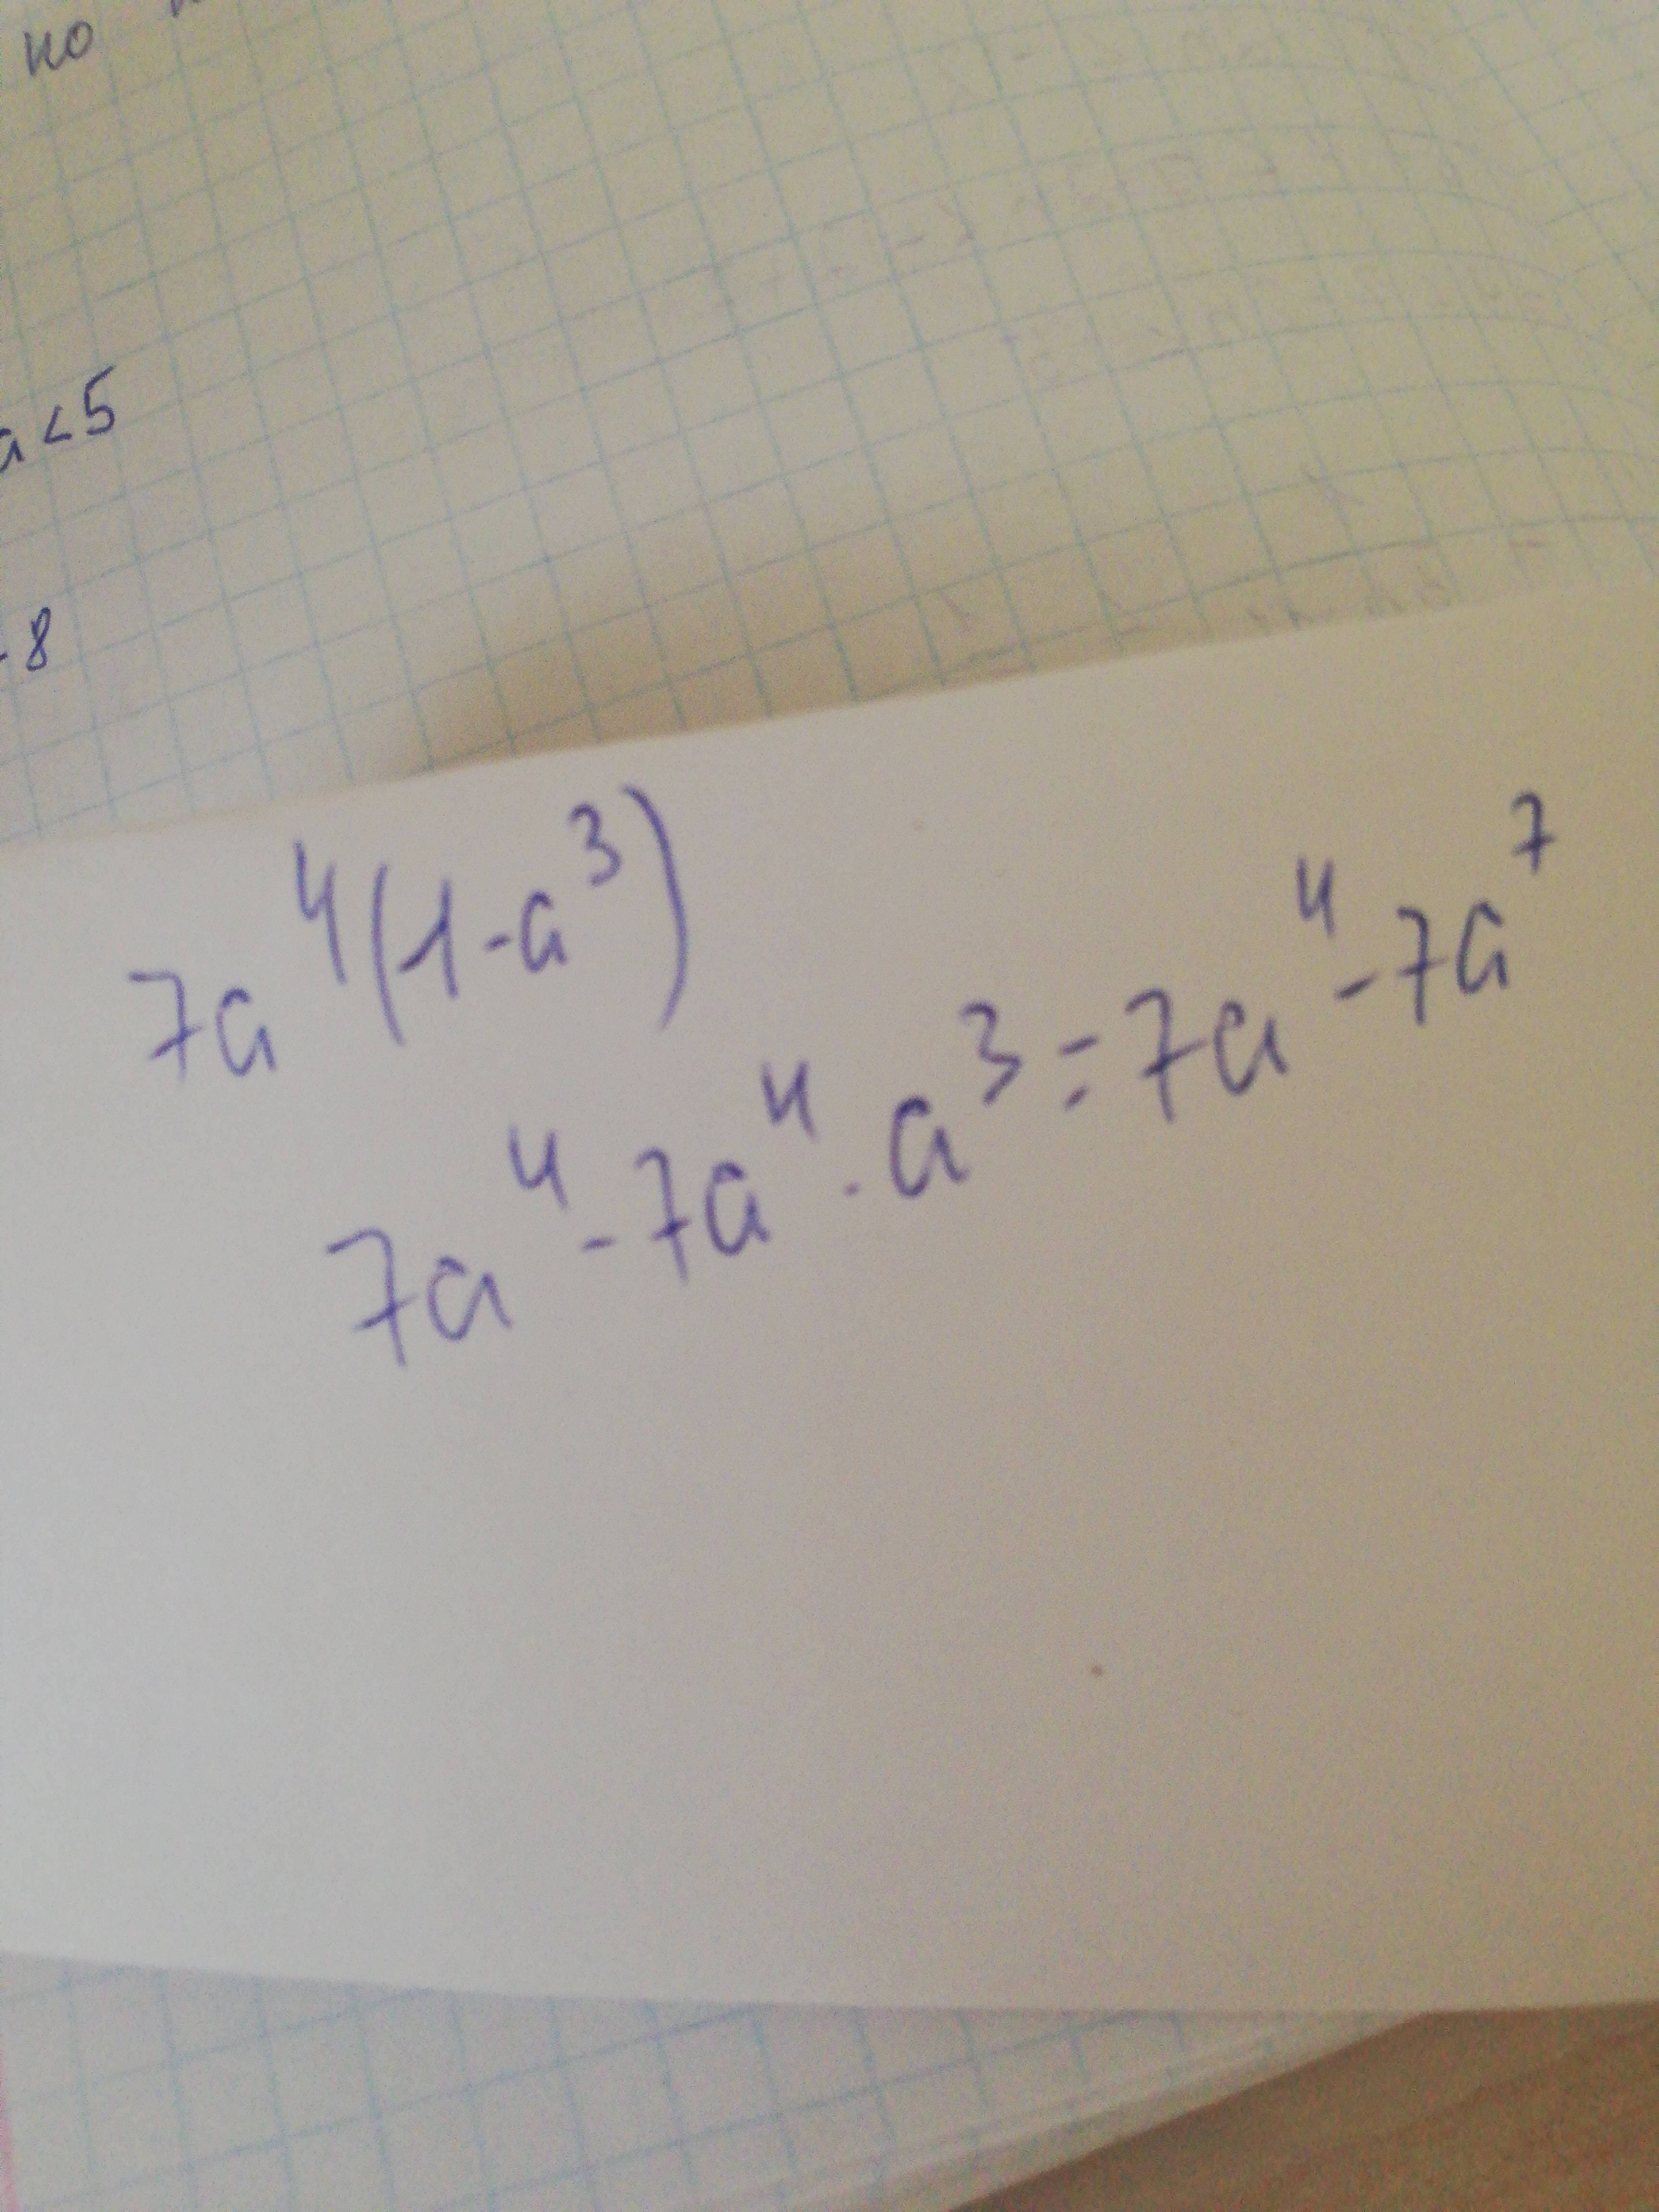 но
a<5
-8
7a⁴(1-a³)
7a⁴-7a⁴·a³=7a⁴-7a⁷